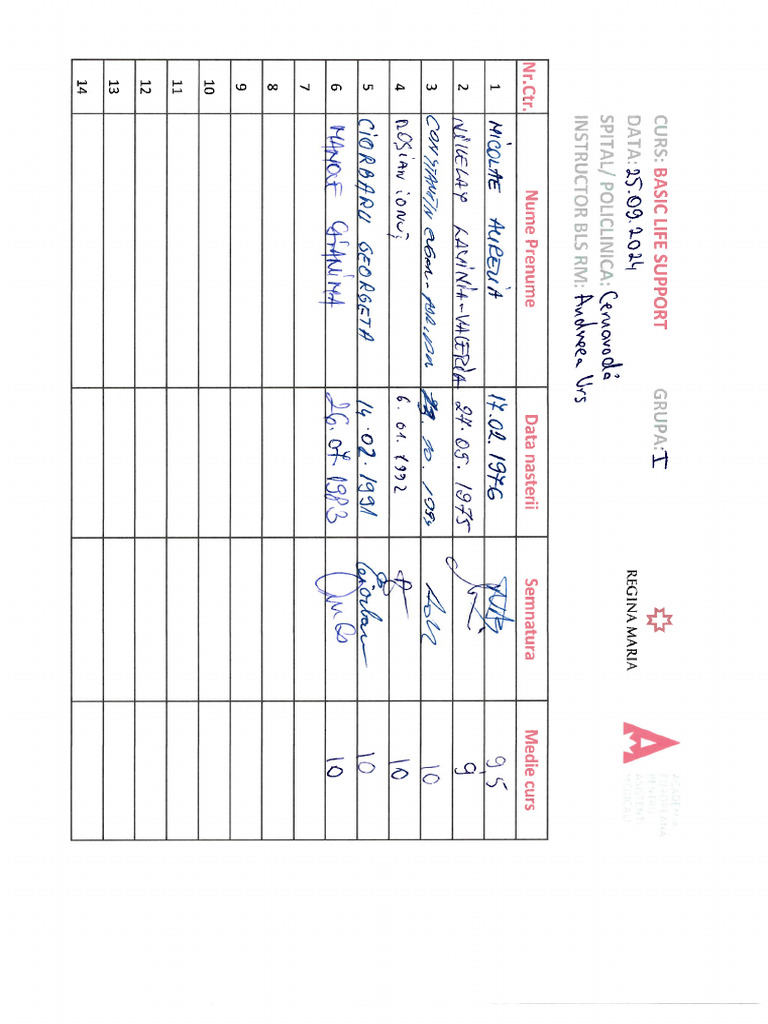 CURS: BASIC LIFE SUPPORT GRUPA: I
DATA: 25.09.2024
SPITAL/ POLICLINICA: Cernavodă
INSTRUCTOR BLS RM: Andreea Urs
REGINA MARIA
ACADEMIA
EUROPEANA
PENTRU
ASISTENTI
MEDICALI
Nr.Ctr. Nume Prenume Data nasterii Semnatura Medie curs
1 NICOLAE AURELIA 17.02.1976 9,5
2 LAVINIA-VALERIA 27.05.1975 9
3 CONSTANTIN 10
4 ROȘIAN IONUȚ 6.01.1992 10
5 CIORBARU GEORGETA 14.02.1991 10
6 MANOLE GIANINA 26.07.1983 10
7
8
9
10
11
12
13
14